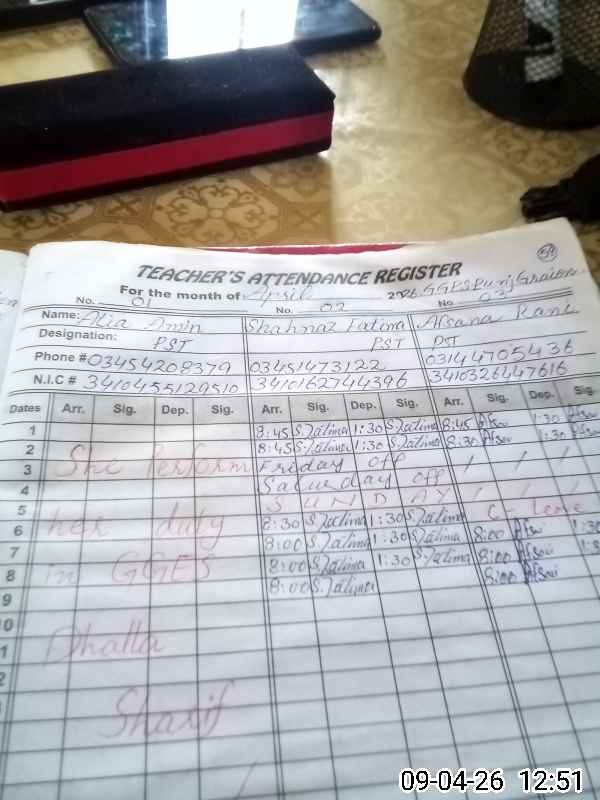 59
TEACHER'S ATTENDANCE REGISTER
For the month of April 2026 GGPS Punj Graien
No. 01 No. 02 No 03
Name: Alia Amin Shahnaz Fatima Afsana Kani
Designation: PST PST PST
Phone # 03454208379 03451473122 03144705436
N.I.C # 3410455129510 3410162744396 3410326447616
Dates Arr. Sig. Dep. Sig. Arr. Sig. Dep. Sig. Arr. Sig. Dep. Sig.
1 8:45 S.Fatima 1:30 S.Fatima 8:45 Afsai 1:30 Afsai
2 8:45 S.Fatima 1:30 S.Fatima 8:30 Afsai 1:30 Afsai
3 She Perform Friday off
4 Saturday off
5 SUNDAY
6 her duty 8:30 S.Fatima 1:30 S.Fatima C- leave
7 8:00 S.Fatima 1:30 S.Fatima 8:00 Afsai 1:30
8 in GGES 8:00 S.Fatima 1:30 S.Fatima 8:00 Afsai
9 8:00 S.Fatima 8:00 Afsai
Dhalla
Sharif
09-04-26 12:51